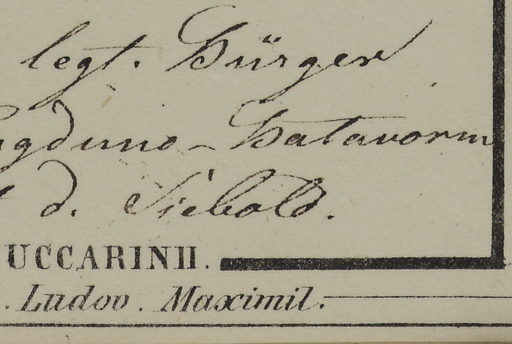 legt. Bürger
ugduno-batavorum
d. Siebold.
UCCARINII.
. Ludov. Maximil.